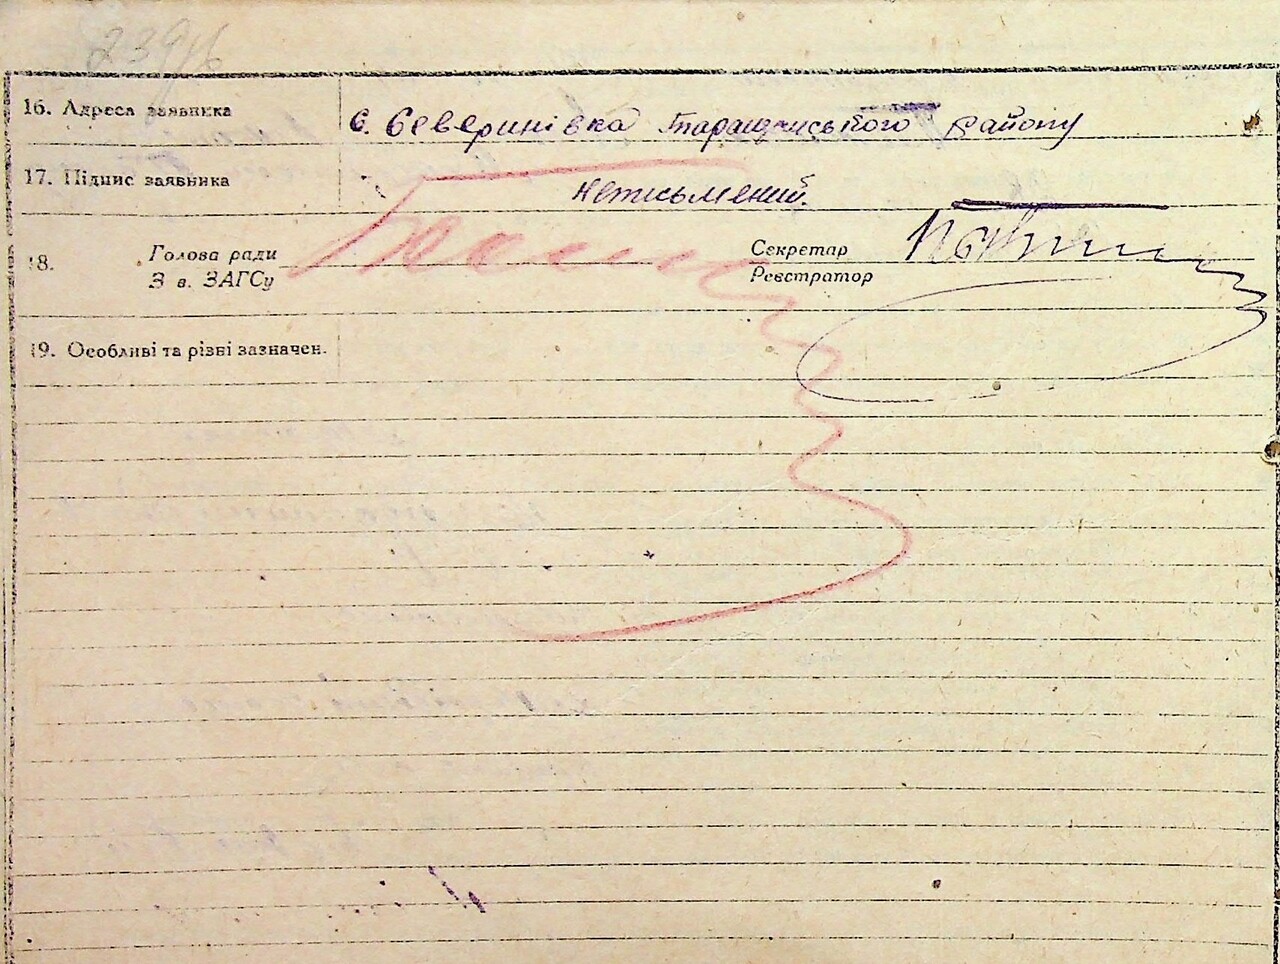 16. Адреса заявника с. Северинівка Таращанського району
17. Підпис заявника неписьмений.
18. Голова ради Секретар
З в. ЗАГСу Реєстратор
19. Особливі та різні зазначен.